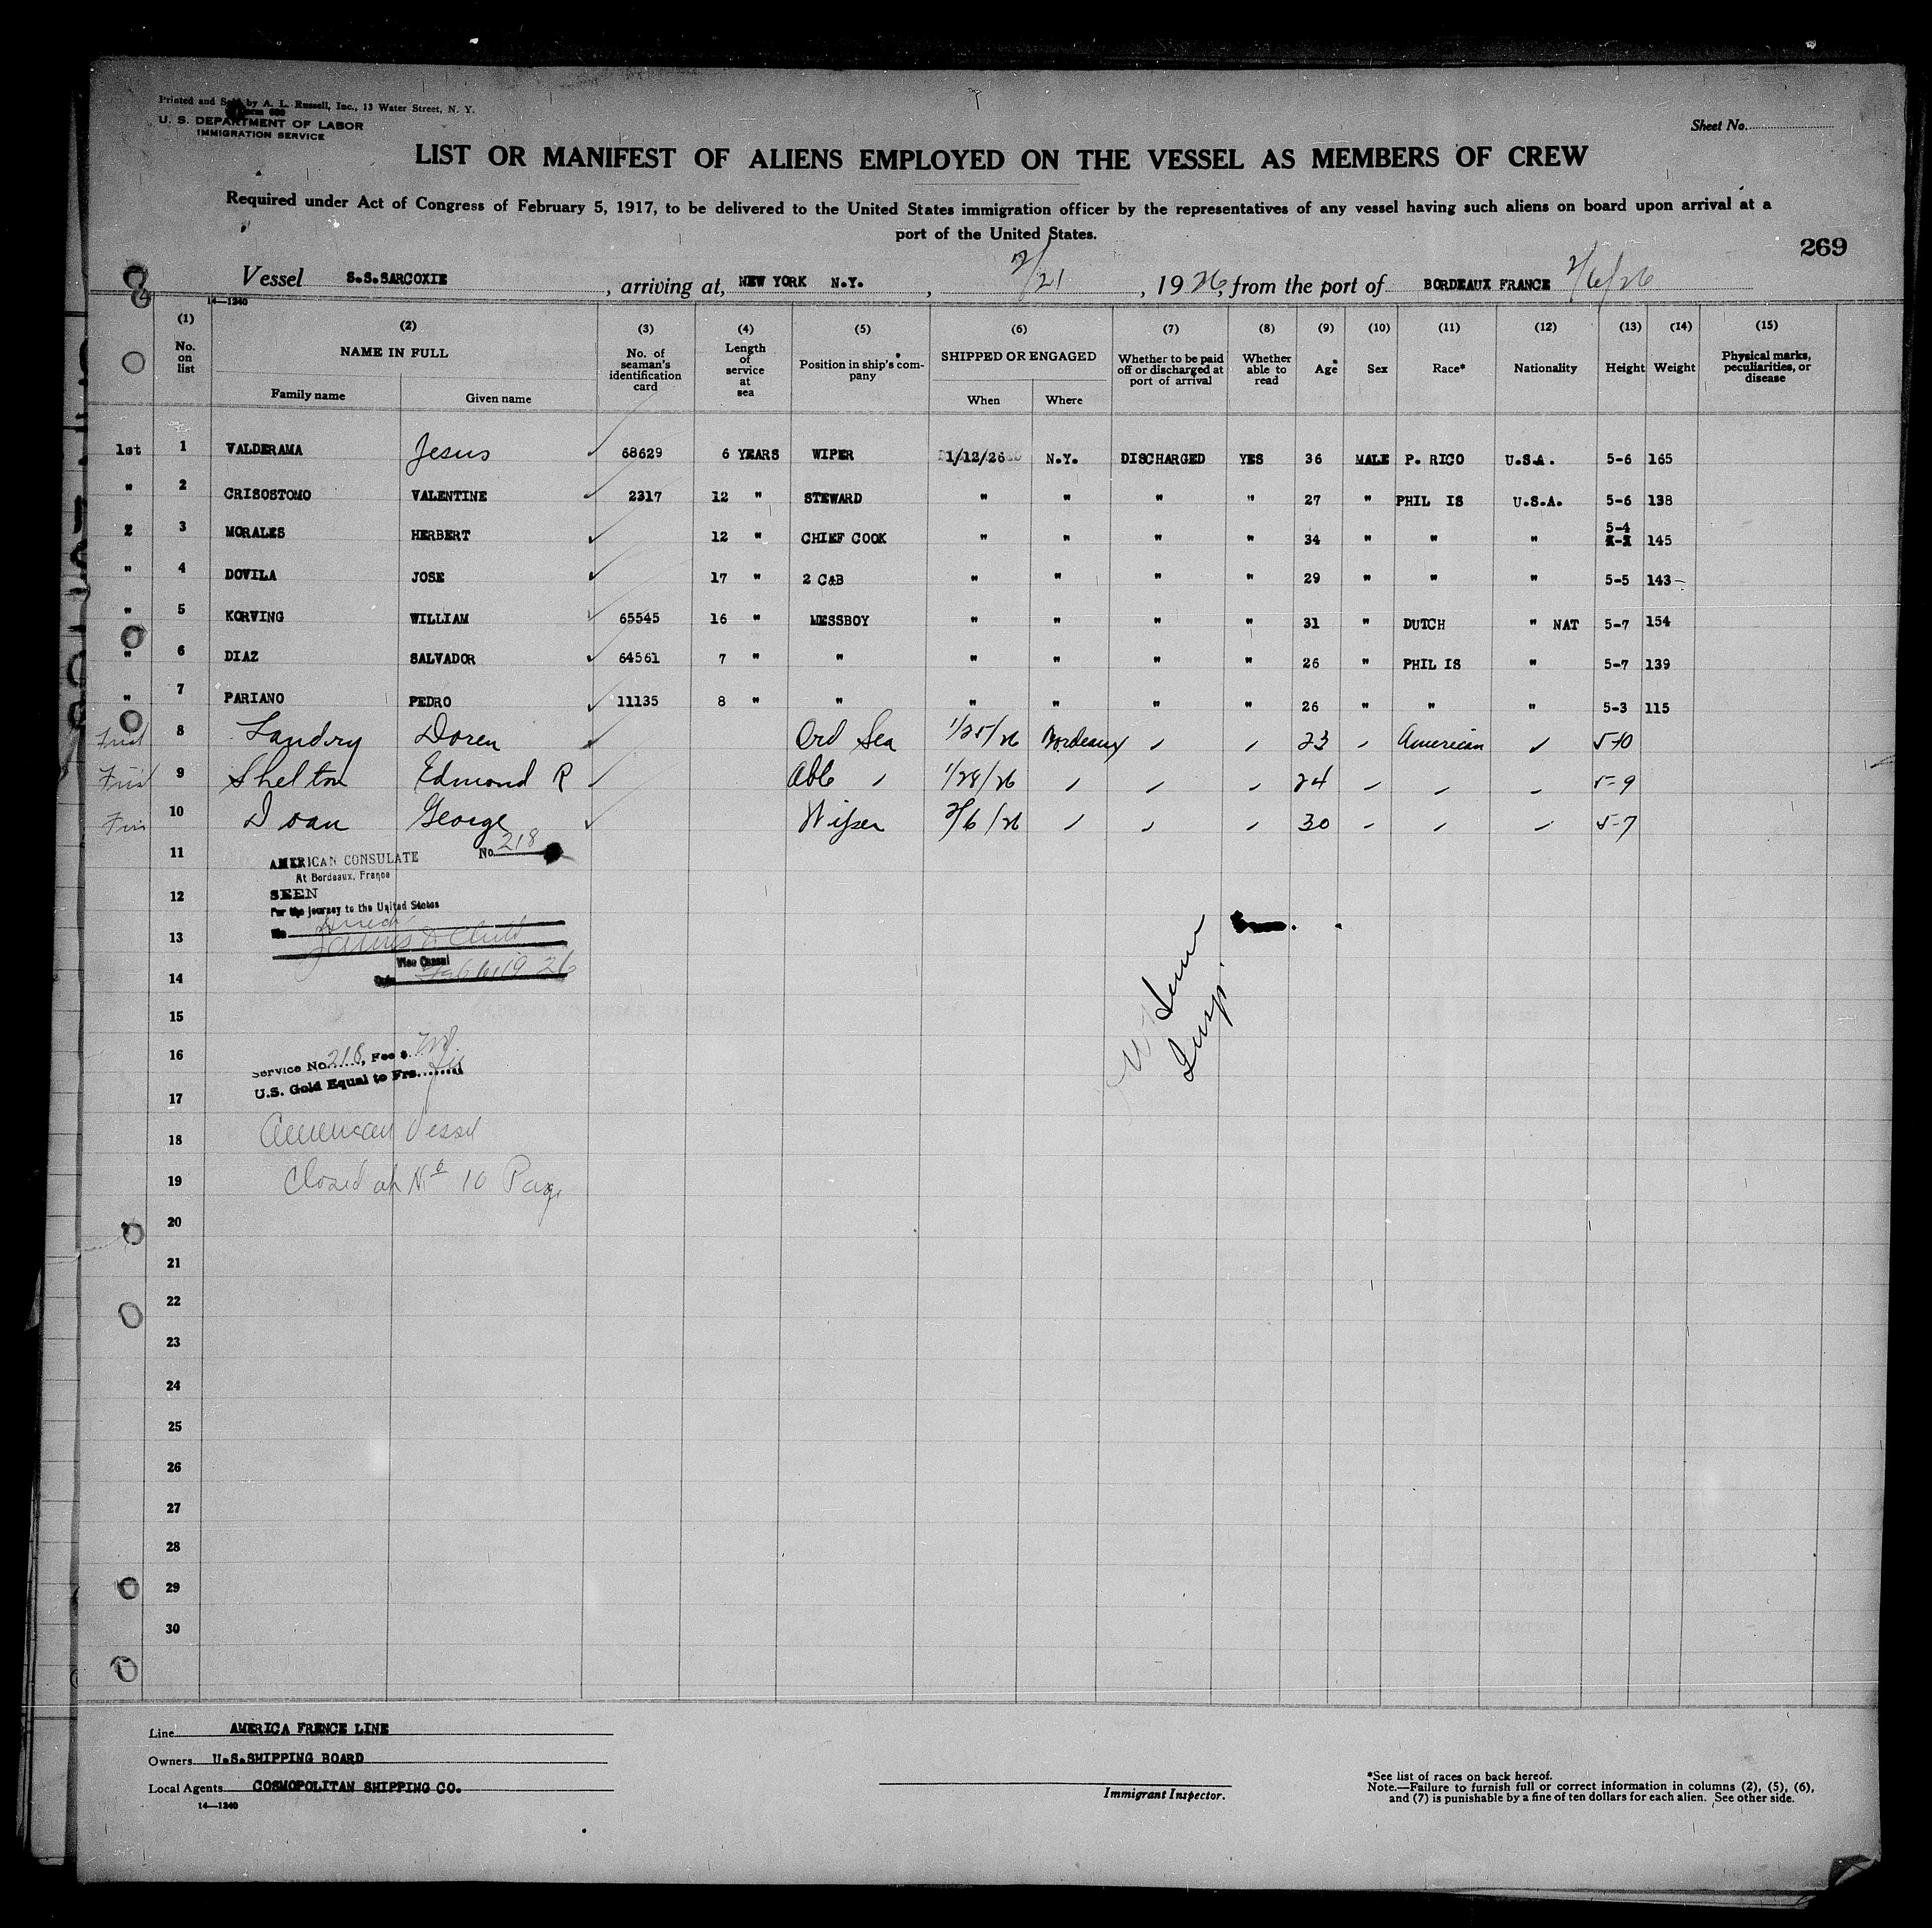 Printed and Sold by A. L. Russell, Inc., 13 Water Street, N. Y.
U. S. DEPARTMENT OF LABOR
IMMIGRATION SERVICE
Sheet No.
LIST OR MANIFEST OF ALIENS EMPLOYED ON THE VESSEL AS MEMBERS OF CREW
Required under Act of Congress of February 5, 1917, to be delivered to the United States immigration officer by the representatives of any vessel having such aliens on board upon arrival at a
port of the United States.
269
Vessel S.S.SARCOXIE, arriving at, NEW YORK N.Y., 2/21, 1926, from the port of BORDEAUX FRANCE 2/6/26
14—1240
(1) (2) (3) (4) (5) (6) (7) (8) (9) (10) (11) (12) (13) (14) (15)
No. on list NAME IN FULL Family name Given name No. of seaman's identification card Length of service at sea Position in ship's company SHIPPED OR ENGAGED When Where Whether to be paid off or discharged at port of arrival Whether able to read Age Sex Race* Nationality Height Weight Physical marks, peculiarities, or disease
1st 1 VALDERAMA Jesus 68629 6 YEARS WIPER 1/12/26 N.Y. DISCHARGED YES 36 MALE P. RICO U.S.A. 5-6 165
" 2 CRISOSTOMO VALENTINE 2317 12 " STEWARD " " " " 27 " PHIL IS U.S.A. 5-6 138
2 3 MORALES HERBERT 12 " CHIEF COOK " " " " 34 " " " 5-4 145
" 4 DOVILA JOSE 17 " 2 C&B " " " " 29 " " " 5-5 143
" 5 KORVING WILLIAM 65545 16 " MESSBOY " " " " 31 " DUTCH " NAT 5-7 154
" 6 DIAZ SALVADOR 64561 7 " " " " " " 26 " PHIL IS " 5-7 139
" 7 PARIANO PEDRO 11135 8 " " " " " " 26 " " " 5-3 115
8 Landry Doren Ord Sea 1/25/26 Bordeaux " " 23 " American " 5-10
9 Shelton Edmond R Able " 1/28/26 " " " 24 " " " 5-9
10 Doan George Wiper 2/6/26 " " " 30 " " " 5-7
11
AMERICAN CONSULATE No. 218
At Bordeaux, France
12
SEEN
For the journey to the United States
13
Vice Consul
14
Date Feb 6, 1926
15
16
Service No. 218, Fee $
U.S. Gold Equal to Frs.
17
18
American Vessel
19
Closed at No 10 Page
20
21
22
23
24
25
26
27
28
29
30
Line AMERICA FRENCE LINE
Owners U.S.SHIPPING BOARD
Local Agents COSMOPOLITAN SHIPPING CO.
14—1240
Immigrant Inspector.
*See list of races on back hereof.
Note.—Failure to furnish full or correct information in columns (2), (5), (6),
and (7) is punishable by a fine of ten dollars for each alien. See other side.